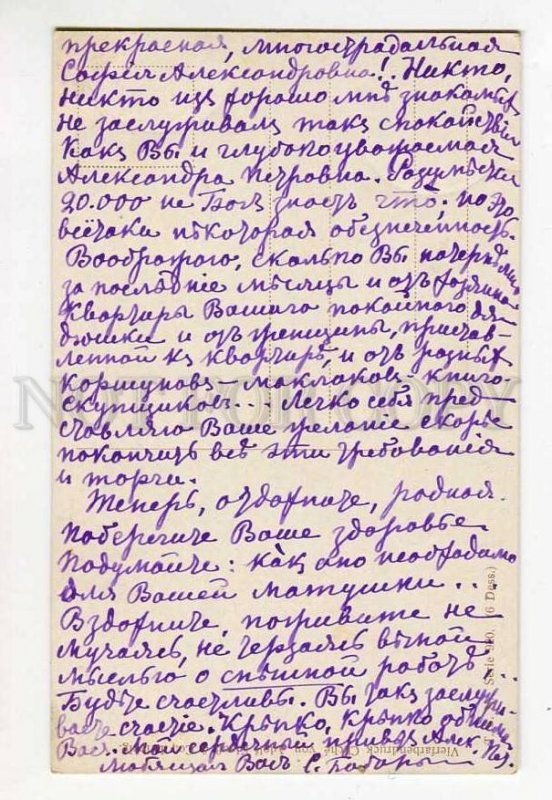 прекрасная, многострадальная
Софья Александровна! Никто,
никто изъ хорошо мнѣ знакомыхъ
не заслуживалъ такъ спокойствія
какъ Вы и глубокоуважаемая
Александра Петровна. Разумѣется
20.000 не Богъ знаетъ что, но это
всётаки нѣкоторая обезпеченность.
Воображаю, сколько Вы натерпѣлись
за послѣдніе мѣсяцы и отъ хозяина
квартиры Вашего покойного дя
дюшки и отъ женщины, пристав-
ленной къ квартирѣ, и отъ разныхъ
коршуновъ маклаковъ, книго-
скупщиковъ... Легко себѣ пред-
ставляю Ваше желаніе скорѣе
покончить всѣ эти требованія
и торги.
Теперь, отдохните, родная.
Поберегите Ваше здоровье.
Подумайте: какъ оно необходимо
для Вашей матушки..
Вздохните, поживите не
мучаясь, не терзаясь вѣчной
мыслью о спѣшной работѣ...
Будьте счастливы. Вы такъ заслужи-
ваете счастіе. Крѣпко, крѣпко обнимаю
Васъ. Мой сердечный привѣтъ Алек. Пет.
Любящая Васъ С.
Vierfarbendruck Cliché von
Serie 990. (6 Dess.)
NOT FOR COPY